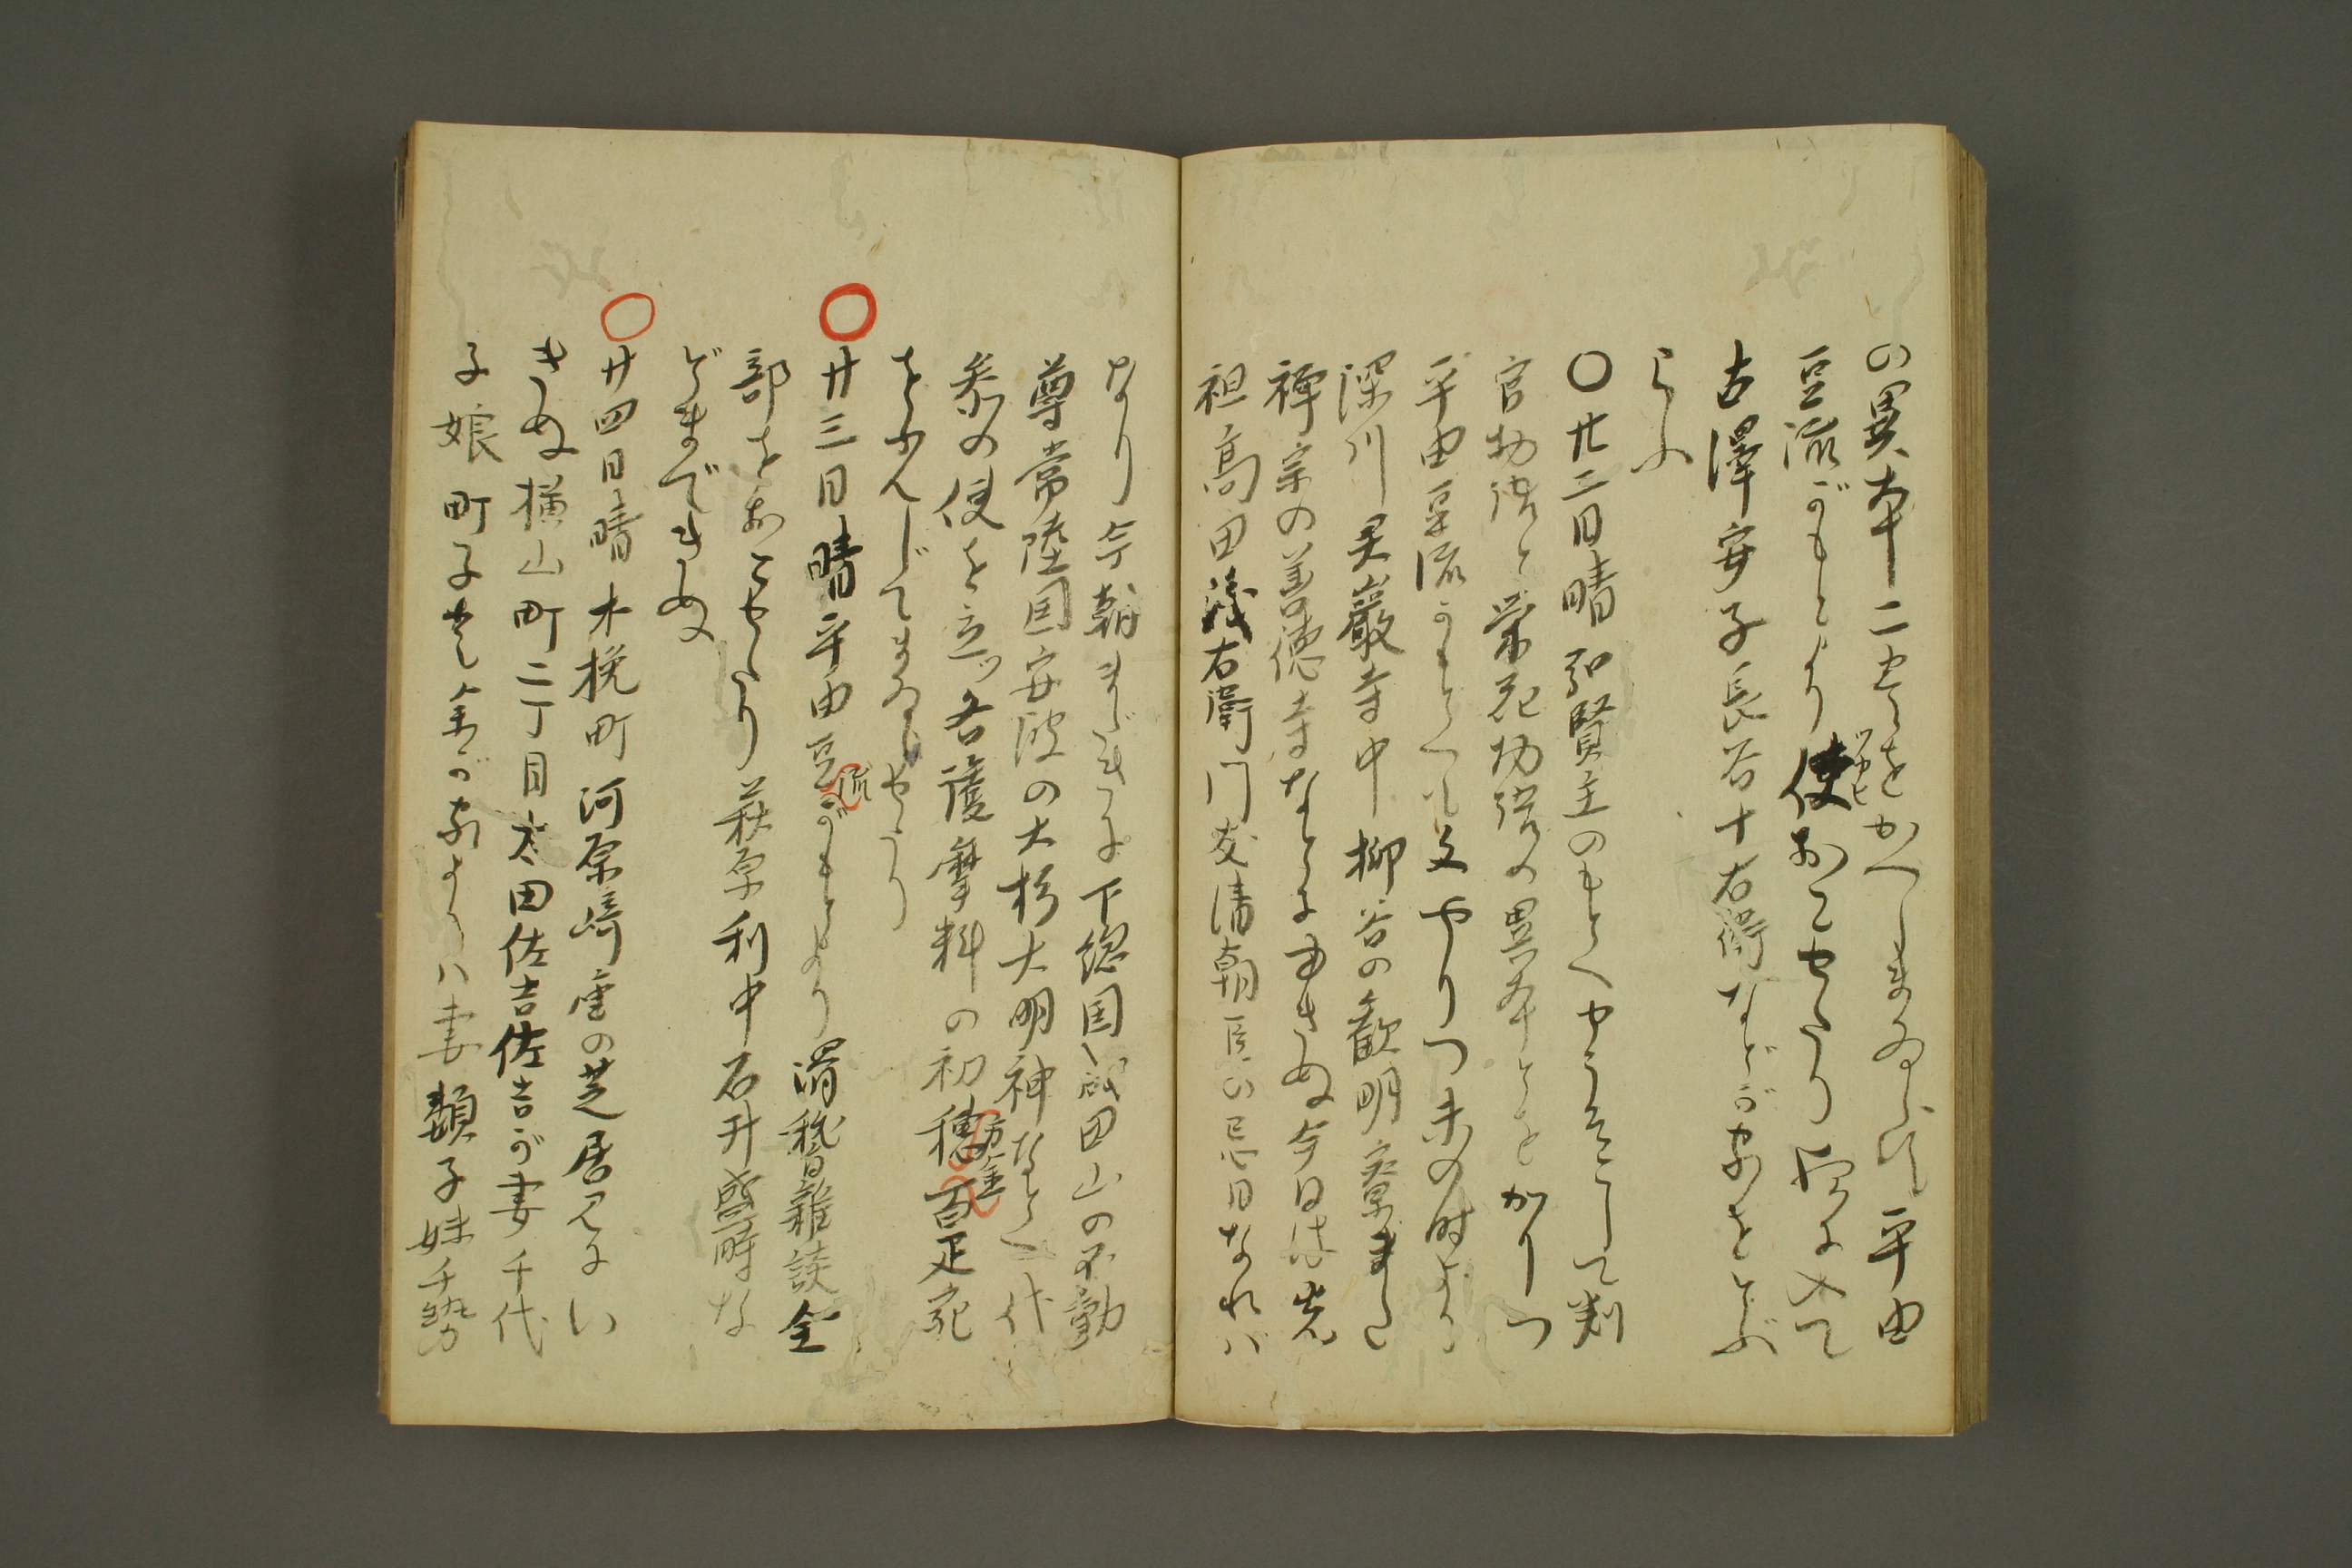 の異本二巻をかへしまゐらす平由
豆流がもとより使おこせたり夜に入て
古澤安子長谷十右衛などが家をとぶ
らふ
〇廿二日晴弘賢主のもとへせうそこして判
官物語と栄花物語の異本とをかりつ
平由豆流がもとへも文やりつ未の時より
深川灵巌寺中柳谷の歓明寮また
禅宗の善徳寺などにゆきぬ今日は先
祖高田茂右衛門友清朝臣の忌日なれバ
なり今朝まだきに下総国成田山の不動
尊常陸国安波の大杉大明神などへ代
参の使を立ツ各護摩料の初穂百疋宛
方金
をふんじてまゐらせたり
廿三日晴平由豆がもとより滑稽雑談全
流
部をおこせたり萩原利中石井盛時な
どまできぬ
廿四日晴木挽町河原崎座の芝居見にい
きぬ横山町二丁目太田佐吉佐吉が妻千代
子娘町子也余が家よりハ妻類子妹千勢